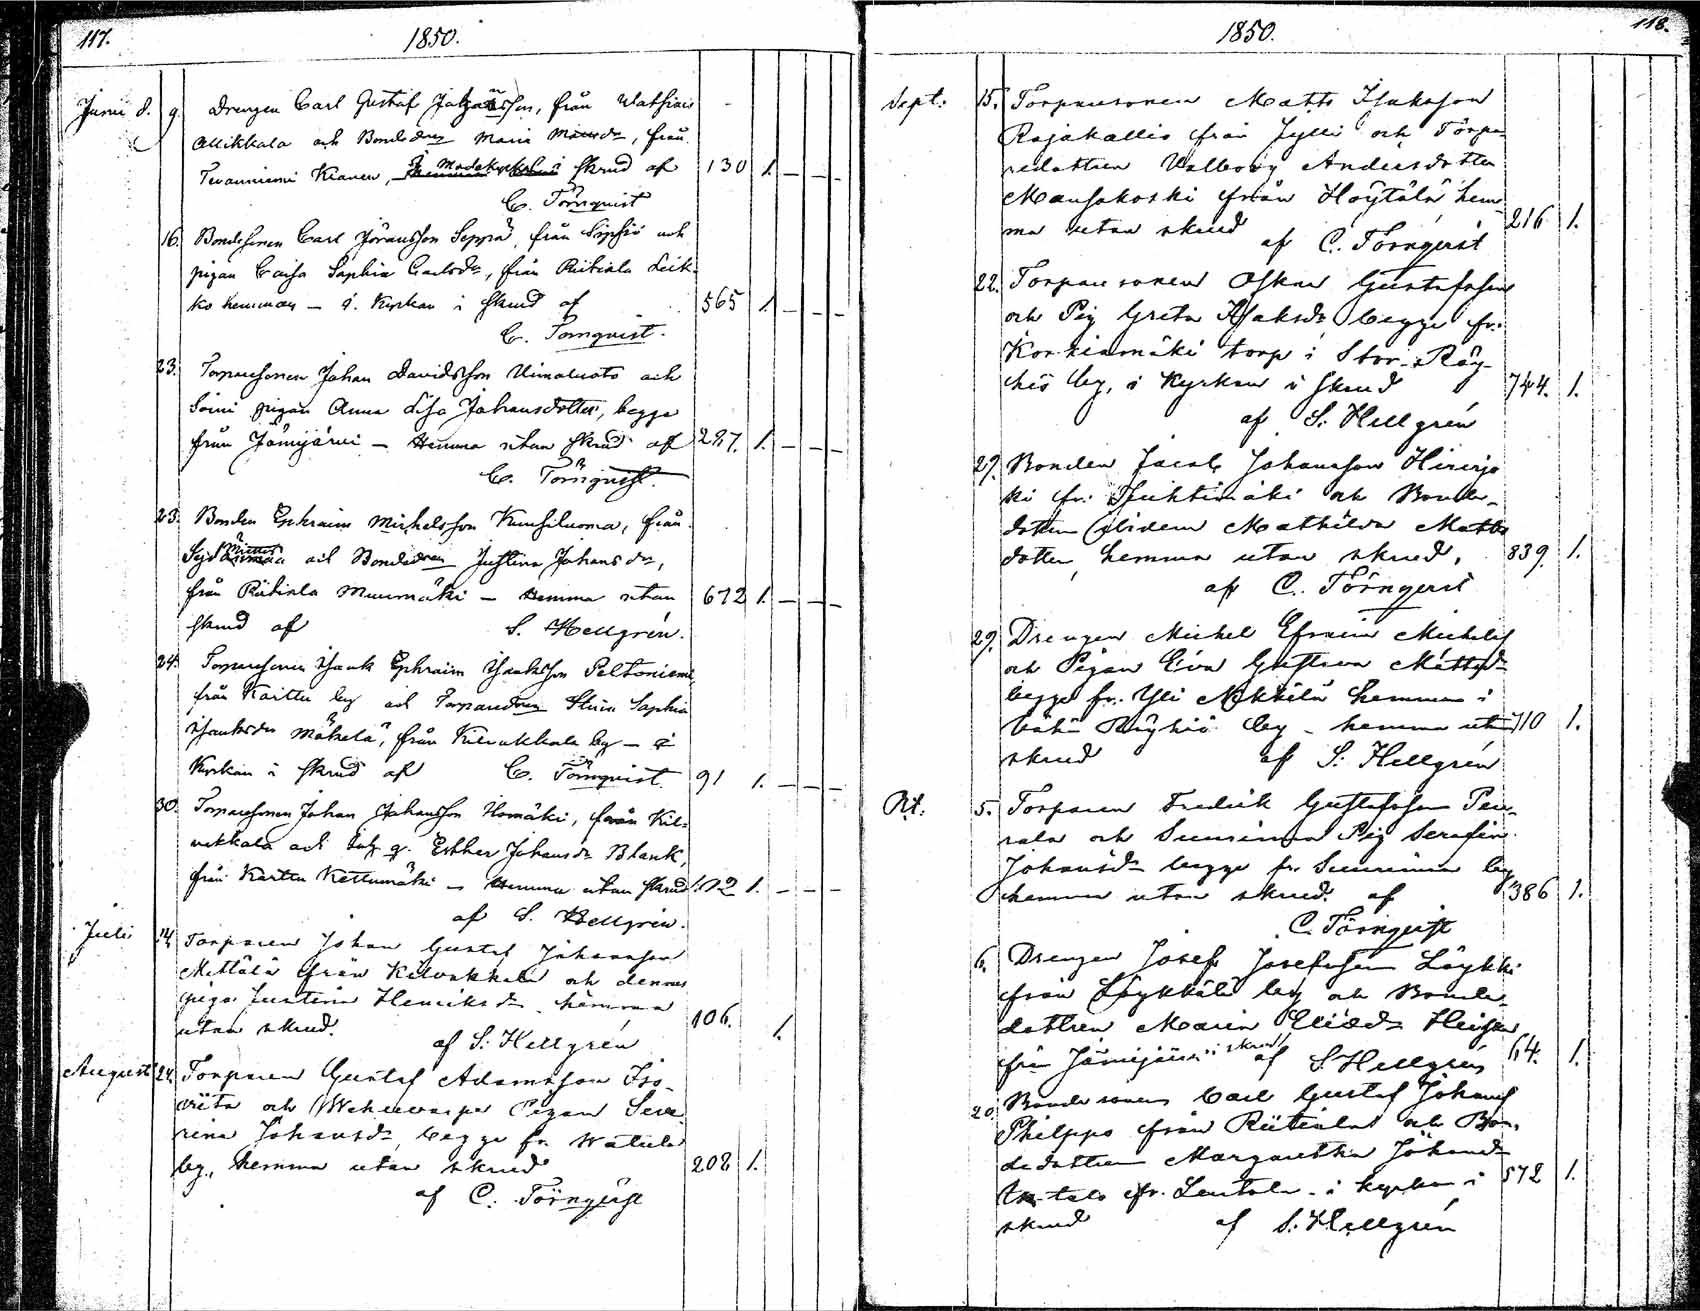 117.
1850.
Junii 8. 9. Drengen Carl Gustaf från
Mikkala och Bondedren Maria från
Tevaniemi Kianen, i Skrud af 130 1. — — —
C. Törnqvist
16. Bondesonen Carl Jöransson Seppä, från Sipsiö och
pigan Caisa Sophia Carlsdr, från Riitiala Leik-
ko hemman — i Kyrkan i Skrud af 565 1. — — —
C. Törnqvist.
23. Torparesonen Johan Davidsson Uimaluoto och
Soini pigan Anna Lisa Johansdotter, begge
från Jämijärvi — Hemma utan Skrud af 287. 1. — — —
C. Törnqvist.
23. Bonden Ephraim Michelsson Kuusiluoma, från
och Bondedren Justina Johansdr,
från Riitiala Muumäki — Hemma utan 672 1. — — —
Skrud af S. Hellgrén.
24. Torparesonen Isaak Ephraim Isaaksson Peltoniemi,
från Karttu by och Torparedren Stina Sophia
Isaaksdr Mäkelä, från Kilvakkala by — i
Kyrkan i Skrud af C. Törnqvist 91 1. — — —
30. Torparesonen Johan Johansson Homäki, från Kil-
vakkala och Esther Johansdr Blank,
från Karttu Kettumäki — Hemma utan Skrud 1. — — —
af S. Hellgrén.
Julii 14 Torparen Johan Gustaf Johansson
Mettälä från Kilvakkala och dennes
piga Justina Henriksdr hemma
utan skrud. af S. Hellgrén 106. 1.
August 24. Torparen Gustaf Adamsson Iso-
och Pigan Seve
rina Johansdr, begge fr.
by, hemma utan skrud 208 1.
af C. Törnqvist
118.
1850.
Sept. 15. Torparesonen Matts Isaksson
Rajakallio från Jylli och Torpa-
redottren Valborg Andersdotter
Mansakoski från Höytälä hem-
ma utan skrud af C. Törnqvist 216 1.
22. Torparesonen Oskar Gustafsson
och Pig Greta Isaksdr begge fr.
Korkiamäki torp i Stor-Röy-
hiö by, i Kyrkan i skrud 744. 1.
af S. Hellgrén
29. Bonden Jacob Johansson Hirvijo
ki fr. och Bonde-
dottern ibidem Mathilda Matts
dotter, hemma utan skrud. 839. 1.
af C. Törnqvist
29. Drengen Michel Efraim Michelss
och Pigan Eva Gustava Mattsdr
begge fr. Yli Nikkilä hemman i
Vähä Röyhiö by - hemma utan 710 1.
skrud af S. Hellgrén
Okt. 5. Torparen Fredrik Gustafsson Pen-
sala och Suurimaa Pig Serafin
Johansdr begge fr. Suurimaa by
hemma utan skrud. af 386 1.
C. Törnqvist
6. Drengen Josef Josefsson Löykki
från by och Bonde-
dottren Maria
från Jämijärvi i skrud af S Hellgrén 64. 1.
20. Bondesonen Carl Gustaf Johanss
Philppa från Riitiala och Bon-
dedottren Margaretha Johansdr
fr. Leutola - i kyrkan i 572 1.
skrud af S. Hellgrén